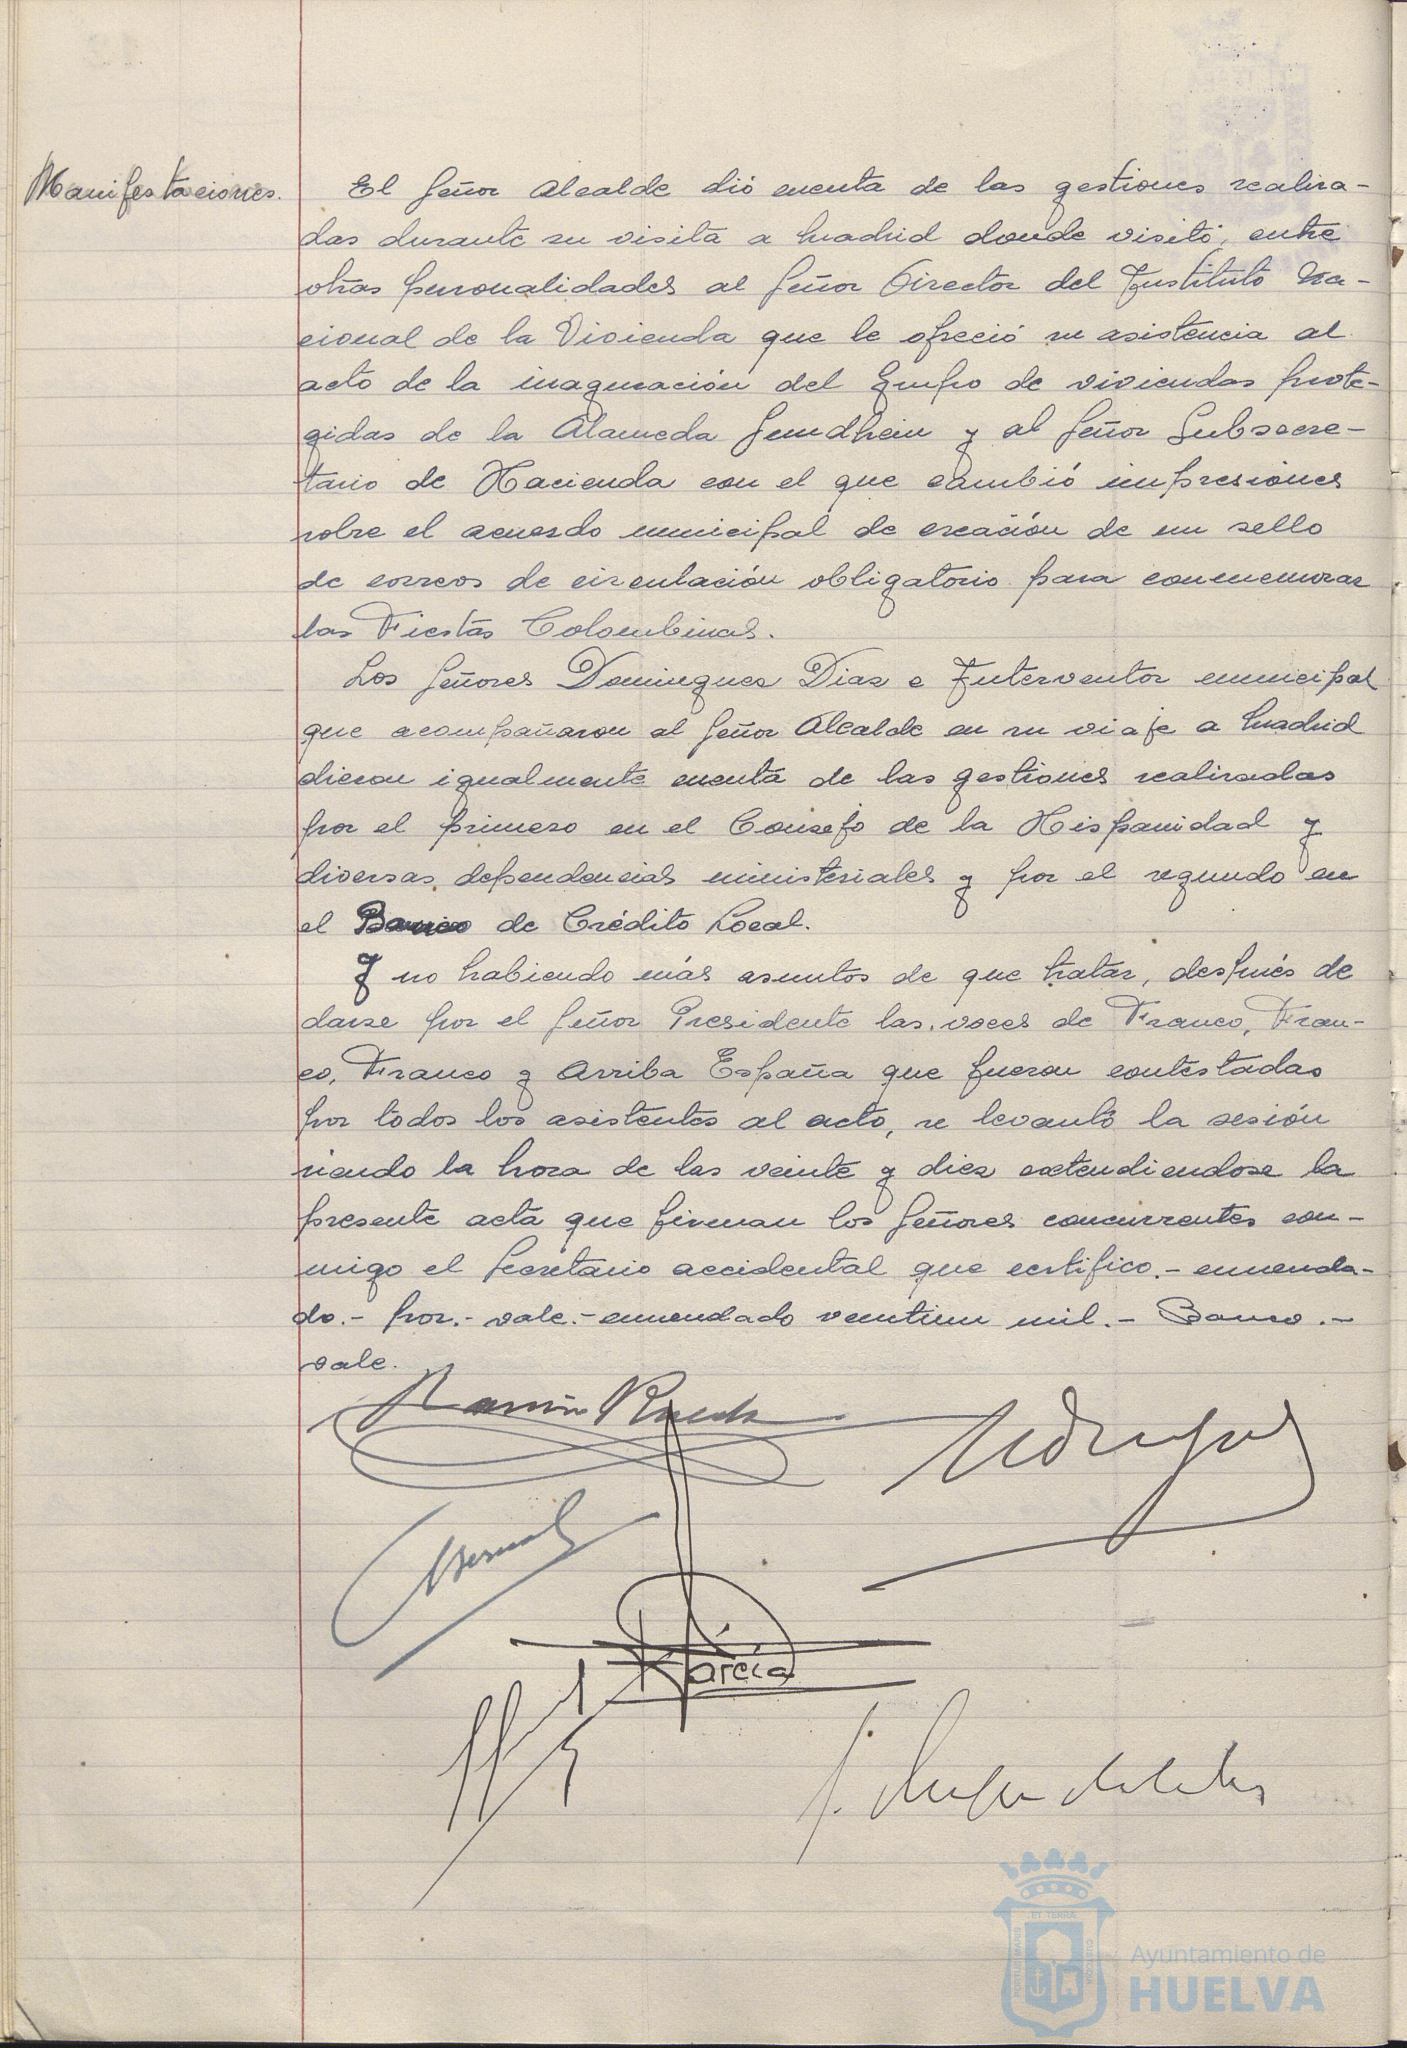 Manifestaciones.
El Señor Alcalde dió cuenta de las gestiones realiza-
das durante su visita a Madrid donde visitó, entre
otras personalidades al Señor Director del Instituto Na-
cional de la Vivienda que le ofreció su asistencia al
acto de la inaguración del Grupo de viviendas prote-
gidas de la Alameda Sundheim y al Señor Subsecre-
tario de Hacienda con el que cambió impresiones
sobre el acuerdo municipal de creación de un sello
de correos de circulación obligatorio para conmemorar
las Fiestas Colombinas.
Los Señores Dominguez Diaz e Interventor municipal
que acompañaron al Señor Alcalde en su viaje a Madrid
dieron igualmente cuenta de las gestiones realizadas
por el primero en el Consejo de la Hispanidad y
diversas dependencias ministeriales y por el segundo en
el Banco de Crédito Local.
Y no habiendo más asuntos de que tratar, después de
darse por el Señor Presidente las voces de Franco, Fran-
co, Franco y Arriba España que fueron contestadas
por todos los asistentes al acto, se levantó la sesión
siendo la hora de las veinte y diez extendiendose la
presente acta que firman los Señores concurrentes con-
migo el Secretario accidental que certifico.- enmenda-
do.- por.- vale.- enmendado veintiun mil.- Banco.-
vale.
Ramón Rueda
García
ET TERRÆ
PORTUS MARIS
CUSTODIA
Ayuntamiento de
HUELVA